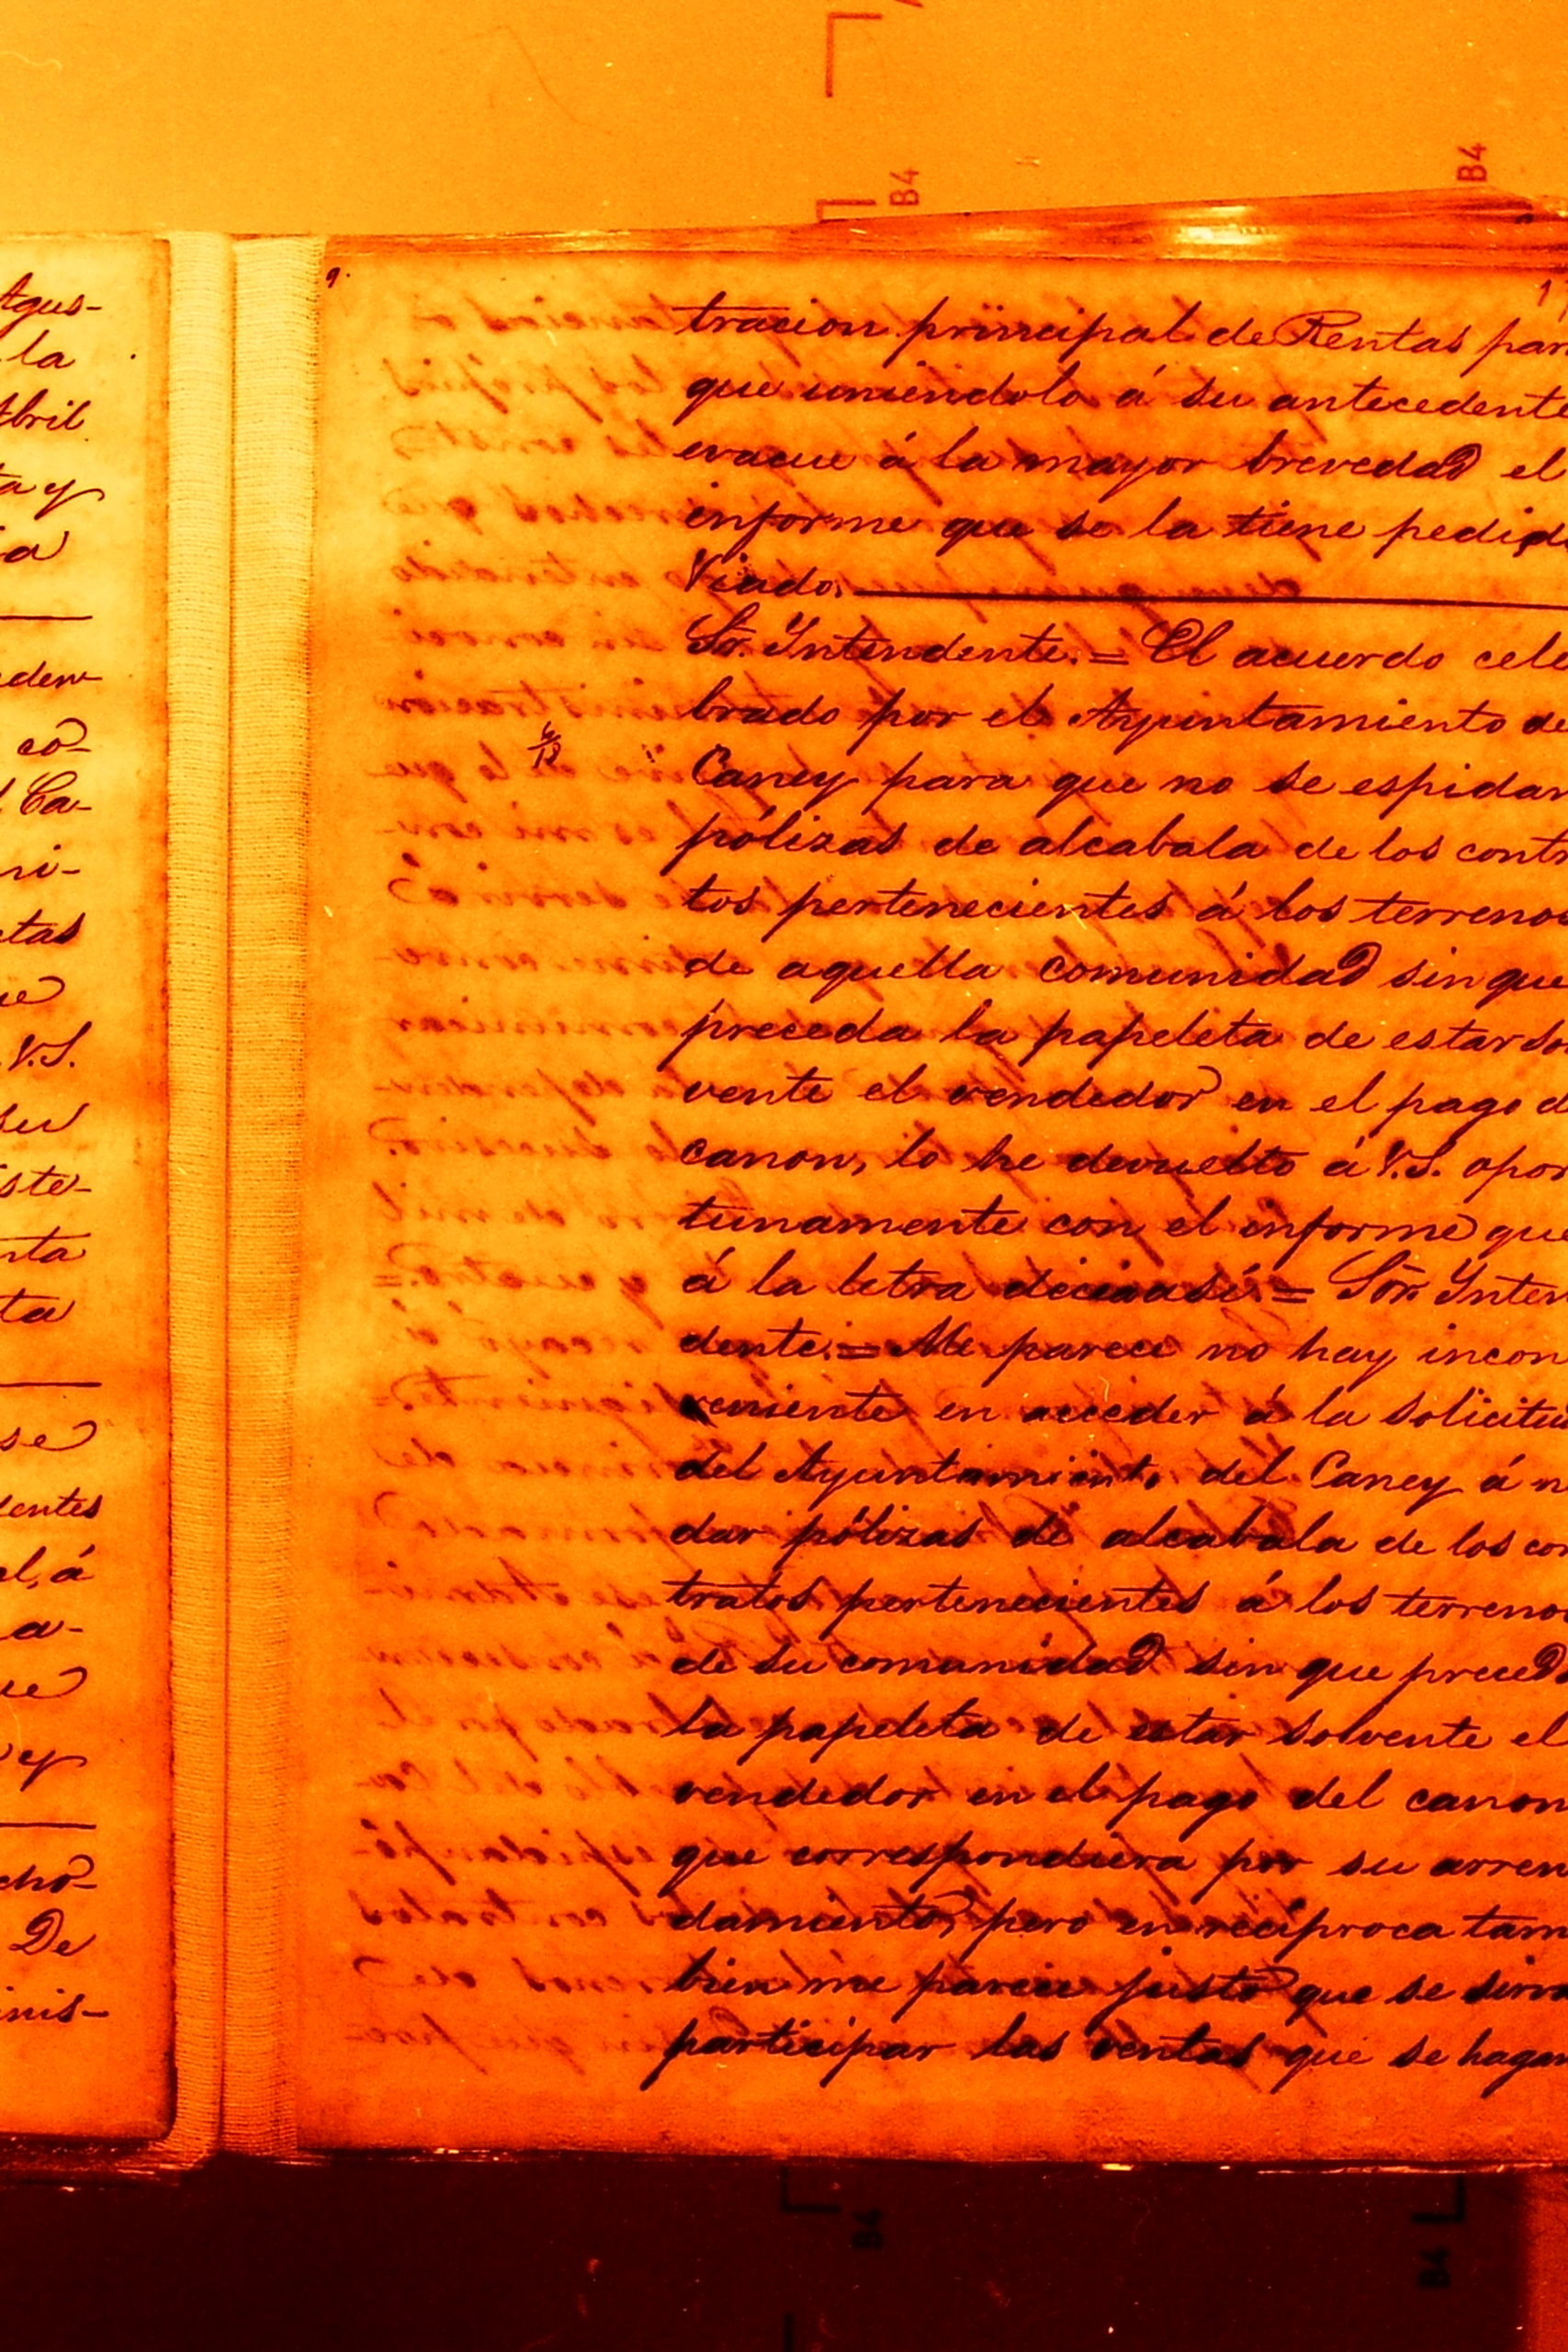 B4
B4
Agus-
la
Abril
ta y
eden-
co-
l Ca-
ni-
ctas
V.S.
su
iste-
nta
ta
se
dentes
el, á
a-
ey
cho-
De
inis-
9.
tracion principal de Rentas par
que uniéndolo á su antecedente
evacue á la mayor brevedad el
informe que se la tiene pedido
Viado.
Sr. Yntendente.= El acuerdo cele
brado por el Ayuntamiento de
Caney para que no se espidan
pólizas de alcabala de los contra
tos pertenecientes á los terrenos
de aquella comunidad sin que
preceda la papeleta de estar sol
vente el vendedor en el pago d
canon, lo he devuelto á V.S. opor
tunamente con el informe que
á la letra dice así.= Sor. Ynten
dente.= Me parece no hay incon
veniente en acceder á la solicitud
del Ayuntamiento del Caney á n
dar pólizas de alcabala de los con
tratos pertenecientes á los terrenos
de su comunidad sin que preceda
la papeleta de estar solvente el
vendedor en el pago del canon
que correspondiera por su arren
damiento, pero en recíproca tam
bien me parece justo que se sirva
participar las ventas que se hagan
B4
B4